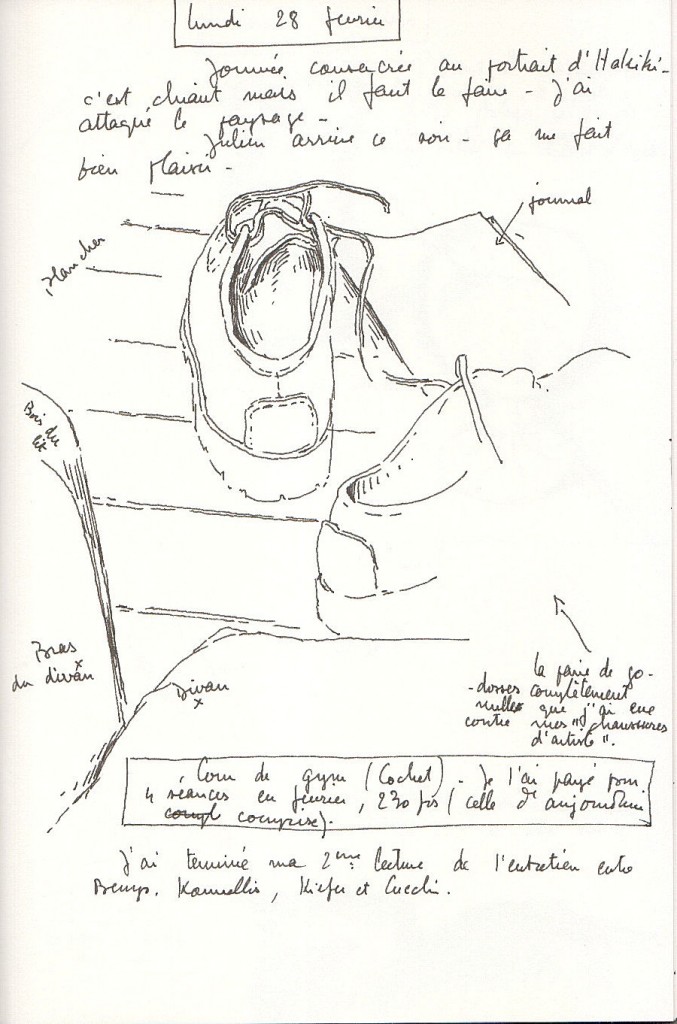 lundi 28 février
Journée consacrée au portrait d'Hakiki -
c'est chiant mais il faut le faire - J'ai
attaqué le paysage -
Julien arrive ce soir - ça me fait
bien plaisir -
journal
plancher
Bois du
lit
Bras
du divan
Divan
la paire de go-
-dasses complètement
nulles que j'ai eue
contre mes "chaussures
d'artiste".
Cours de gym (Cochet) - Je l'ai payé pour
4 séances en février, 230 frs (celle d'aujourdhui
compt comprise).
J'ai terminé ma 2ème lecture de l'entretien entre
Beuys, Kounellis, Kiefer et Cucchi.